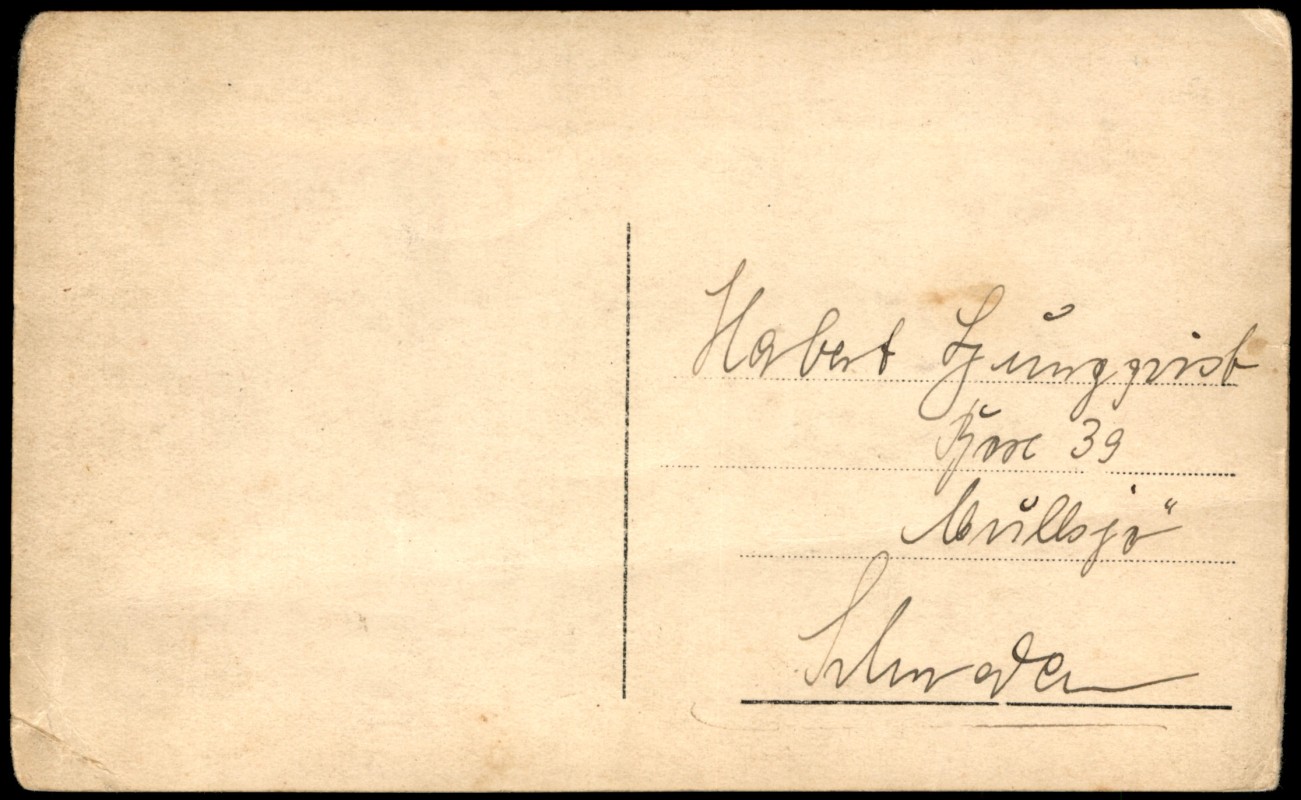 Habert Ljungqvist
Box 39
Mullsjö
Schweden